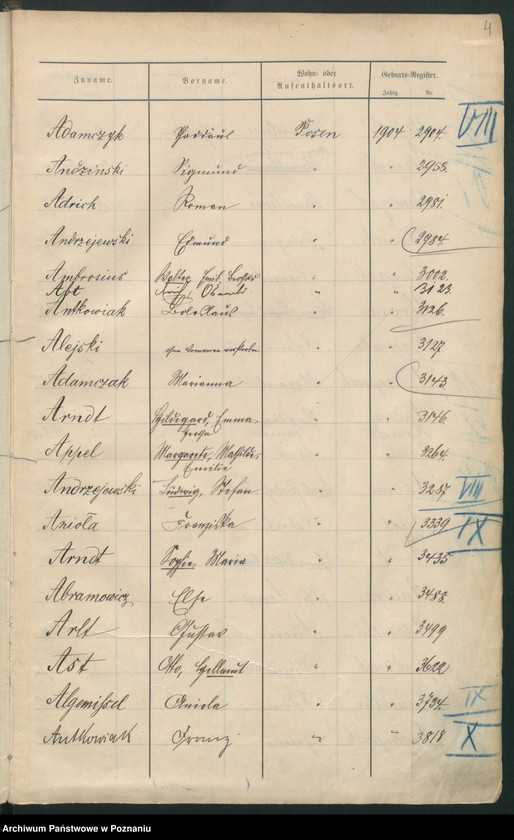 4
Zuname. Vorname. Wohn- oder Aufenthaltsort. Geburts-Register.
Jahrg. Nr.
Adamczyk Posen 1904 2904. VIII
Andzinski Sigmund " " 2955.
Adrich Roman " " 2981.
Andrzejewski Edmund " " 2984.
Ambrosius Walter Emil " " 3002.
Ast Erich, Oswald " " 3123.
Antkowiak Boleslaus " " 3126.
Alejski ohne Vornamen verstorben " " 3127
Adamczak Marianna " " 3143.
Arndt Hildegard, Emma, " " 3146.
Appel Margarete, Mathilde, " " 3264.
Emilie
Andrzejewski Ludwig, Stefan " " 3257. VIII
Arioła Franziska " " 3339 IX
Arndt Sophie, Maria " " 3435
Abramowicz Else " " 3488.
Arlt Gustav " " 3499
Ast Otto, Hellmut " " 3622
Algemissel Aniela " " 3734. IX
Antkowiak Franz " " 3818 X
Archiwum Państwowe w Poznaniu